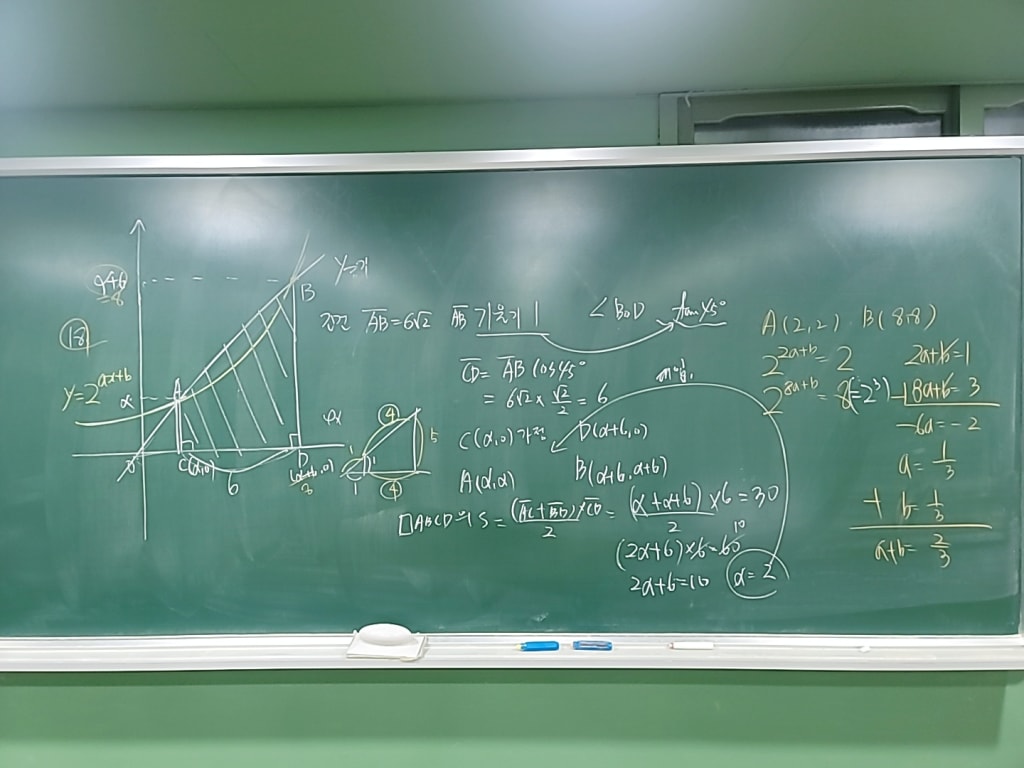 18
y=2^{ax+b}
α+6
=8
α
A
B
y=x
O
C(α,0)
6
D
(α+6,0)
8
④
5
1
④
조건 AB=6√2 AB 기울기 1
∠BOD tan45°
CD = AB cos45°
= 6√2 × √2/2 = 6
C(α,0) 가정 D(α+6,0)
A(α,α) B(α+6, α+6)
□ABCD의 S = (AC+BD)×CD/2 = (α+α+6)/2 ×6=30
(2α+6)×6=60
10
2α+6=10 α=2
A(2,2) B(8,8)
2^{2a+b}=2 2a+b=1
2^{8a+b}=8(=2³) -) 8a+b=3
-6a=-2
a=1/3
+ b=1/3
a+b=2/3